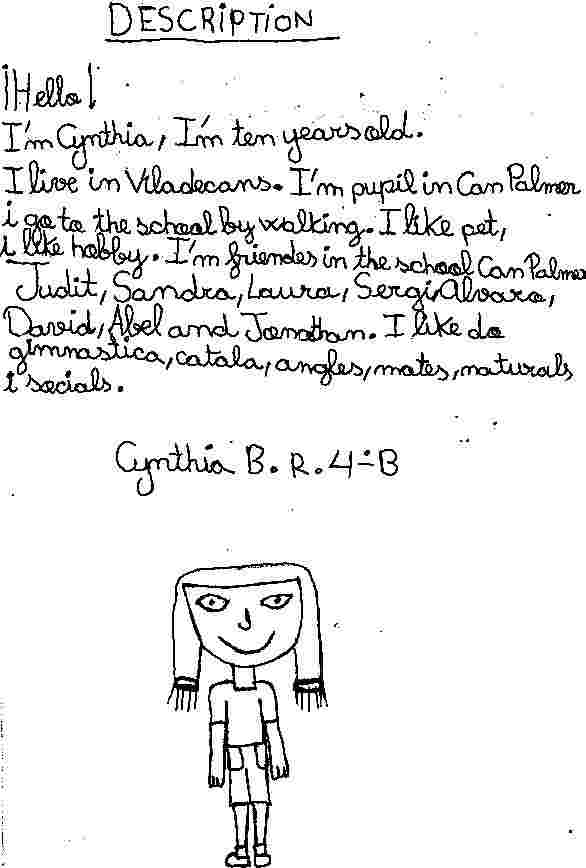 DESCRIPTION
¡Hello!
I'm Cynthia, I'm ten years old.
I live in Viladecans. I'm pupil in Can Palmer
i go to the school by walking. I like pet,
i like hobby. I'm friendes in the school Can Palmer
Judit, Sandra, Laura, Sergi, Alvaro,
David, Abel and Jonathan. I like do
gimnastica, catala, angles, mates, naturals
i socials.
Cynthia B. R. 4-B